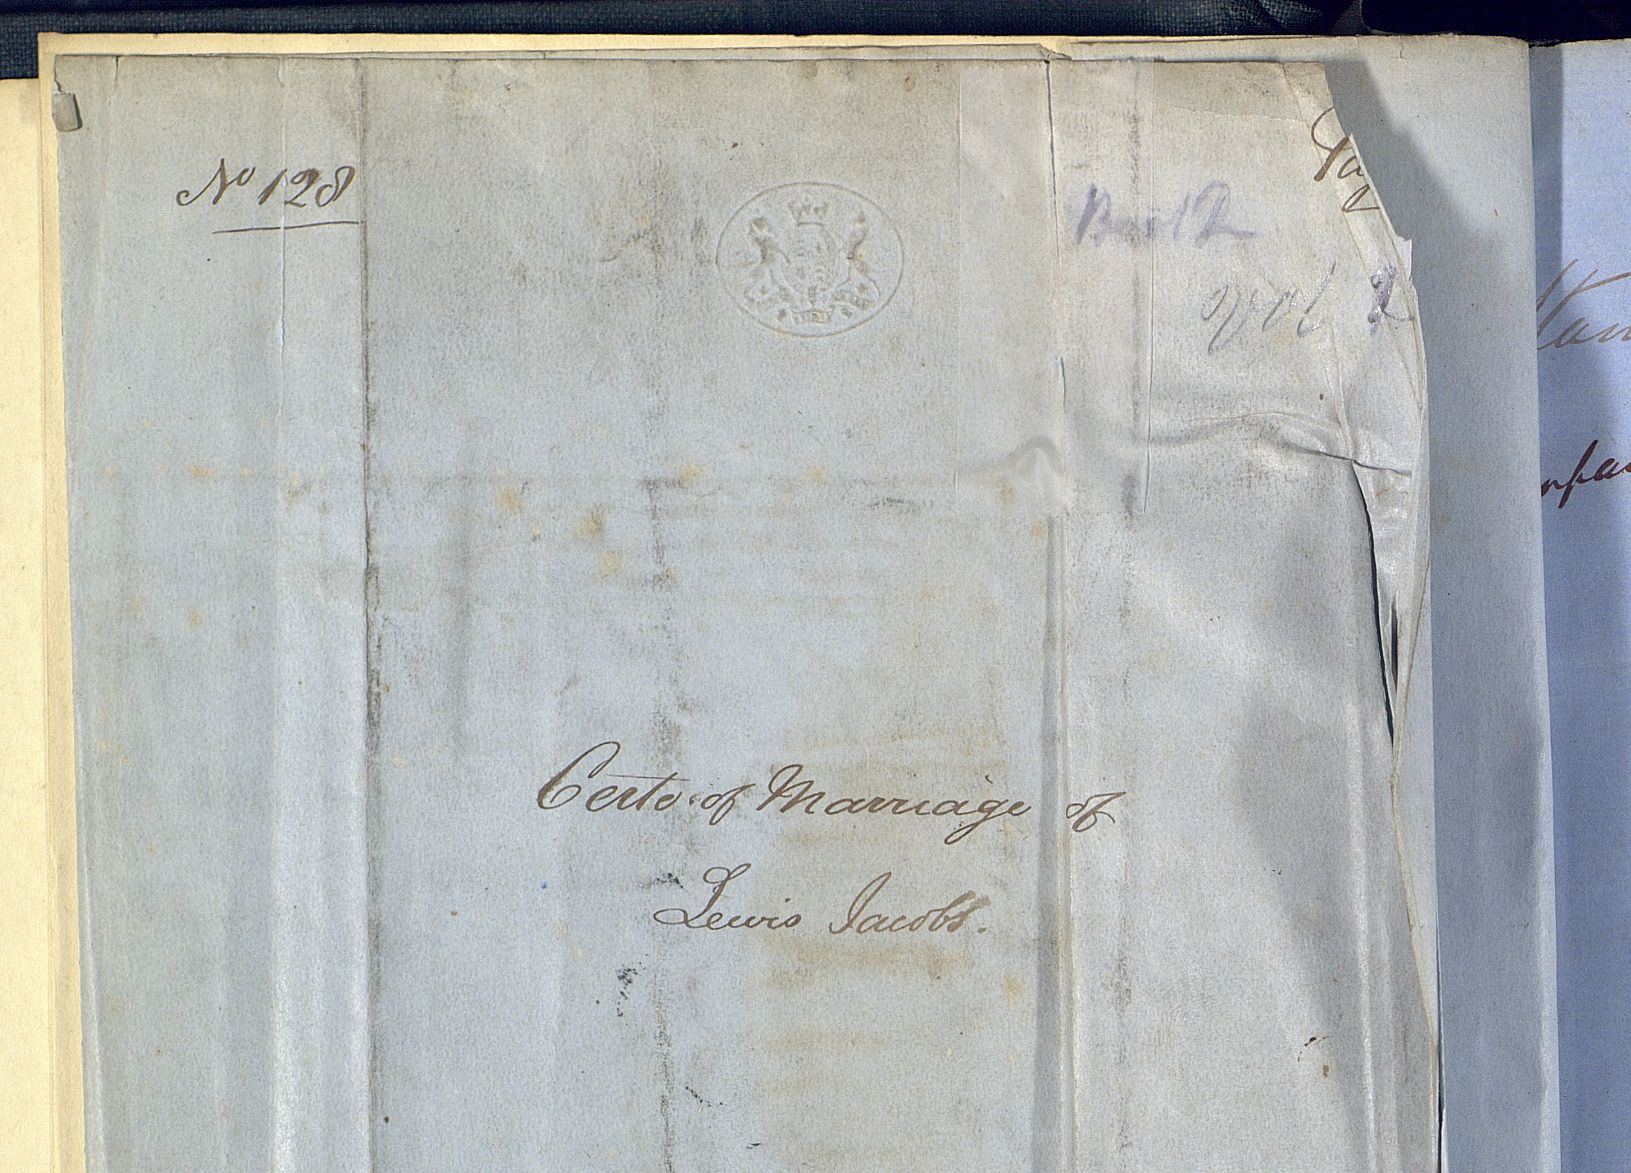 No 128
vol 2
Certe. of Marriage of
Lewis Jacobs.